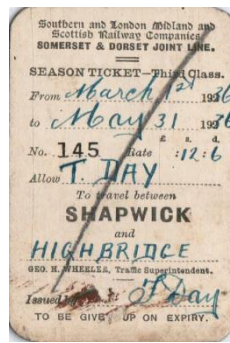 Southern and London Midland and
Scottish Railway Companies.
SOMERSET & DORSET JOINT LINE.
SEASON TICKET—Third Class.
From March 1st 1936
to May 31 1936
£ s. d.
No. 145 Rate :12:6
Allow T. DAY
To travel between
SHAPWICK
and
HIGHBRIDGE
GEO. H. WHEELER, Traffic Superintendent.
Issued T Day
TO BE GIVE UP ON EXPIRY.